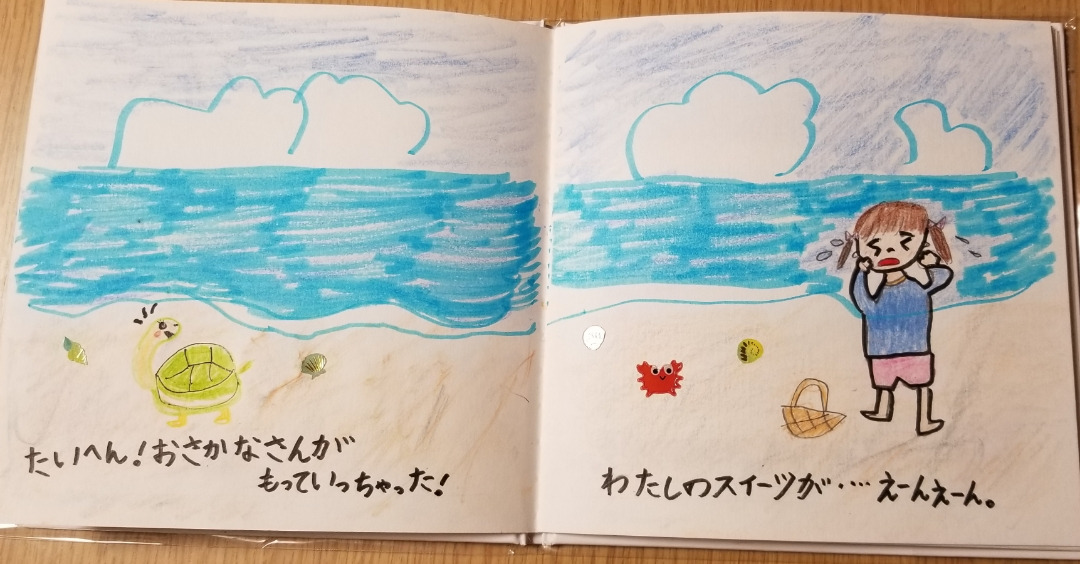 たいへん！おさかなさんが
もっていっちゃった！
わたしのスイーツが・…えーんえーん。